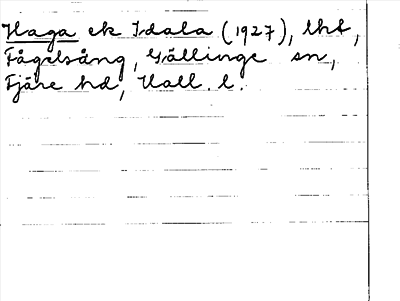 Haga ek Idala (1927), lht,
Fågelsång, Gällinge sn,
Fjäre hd, Hall. l.